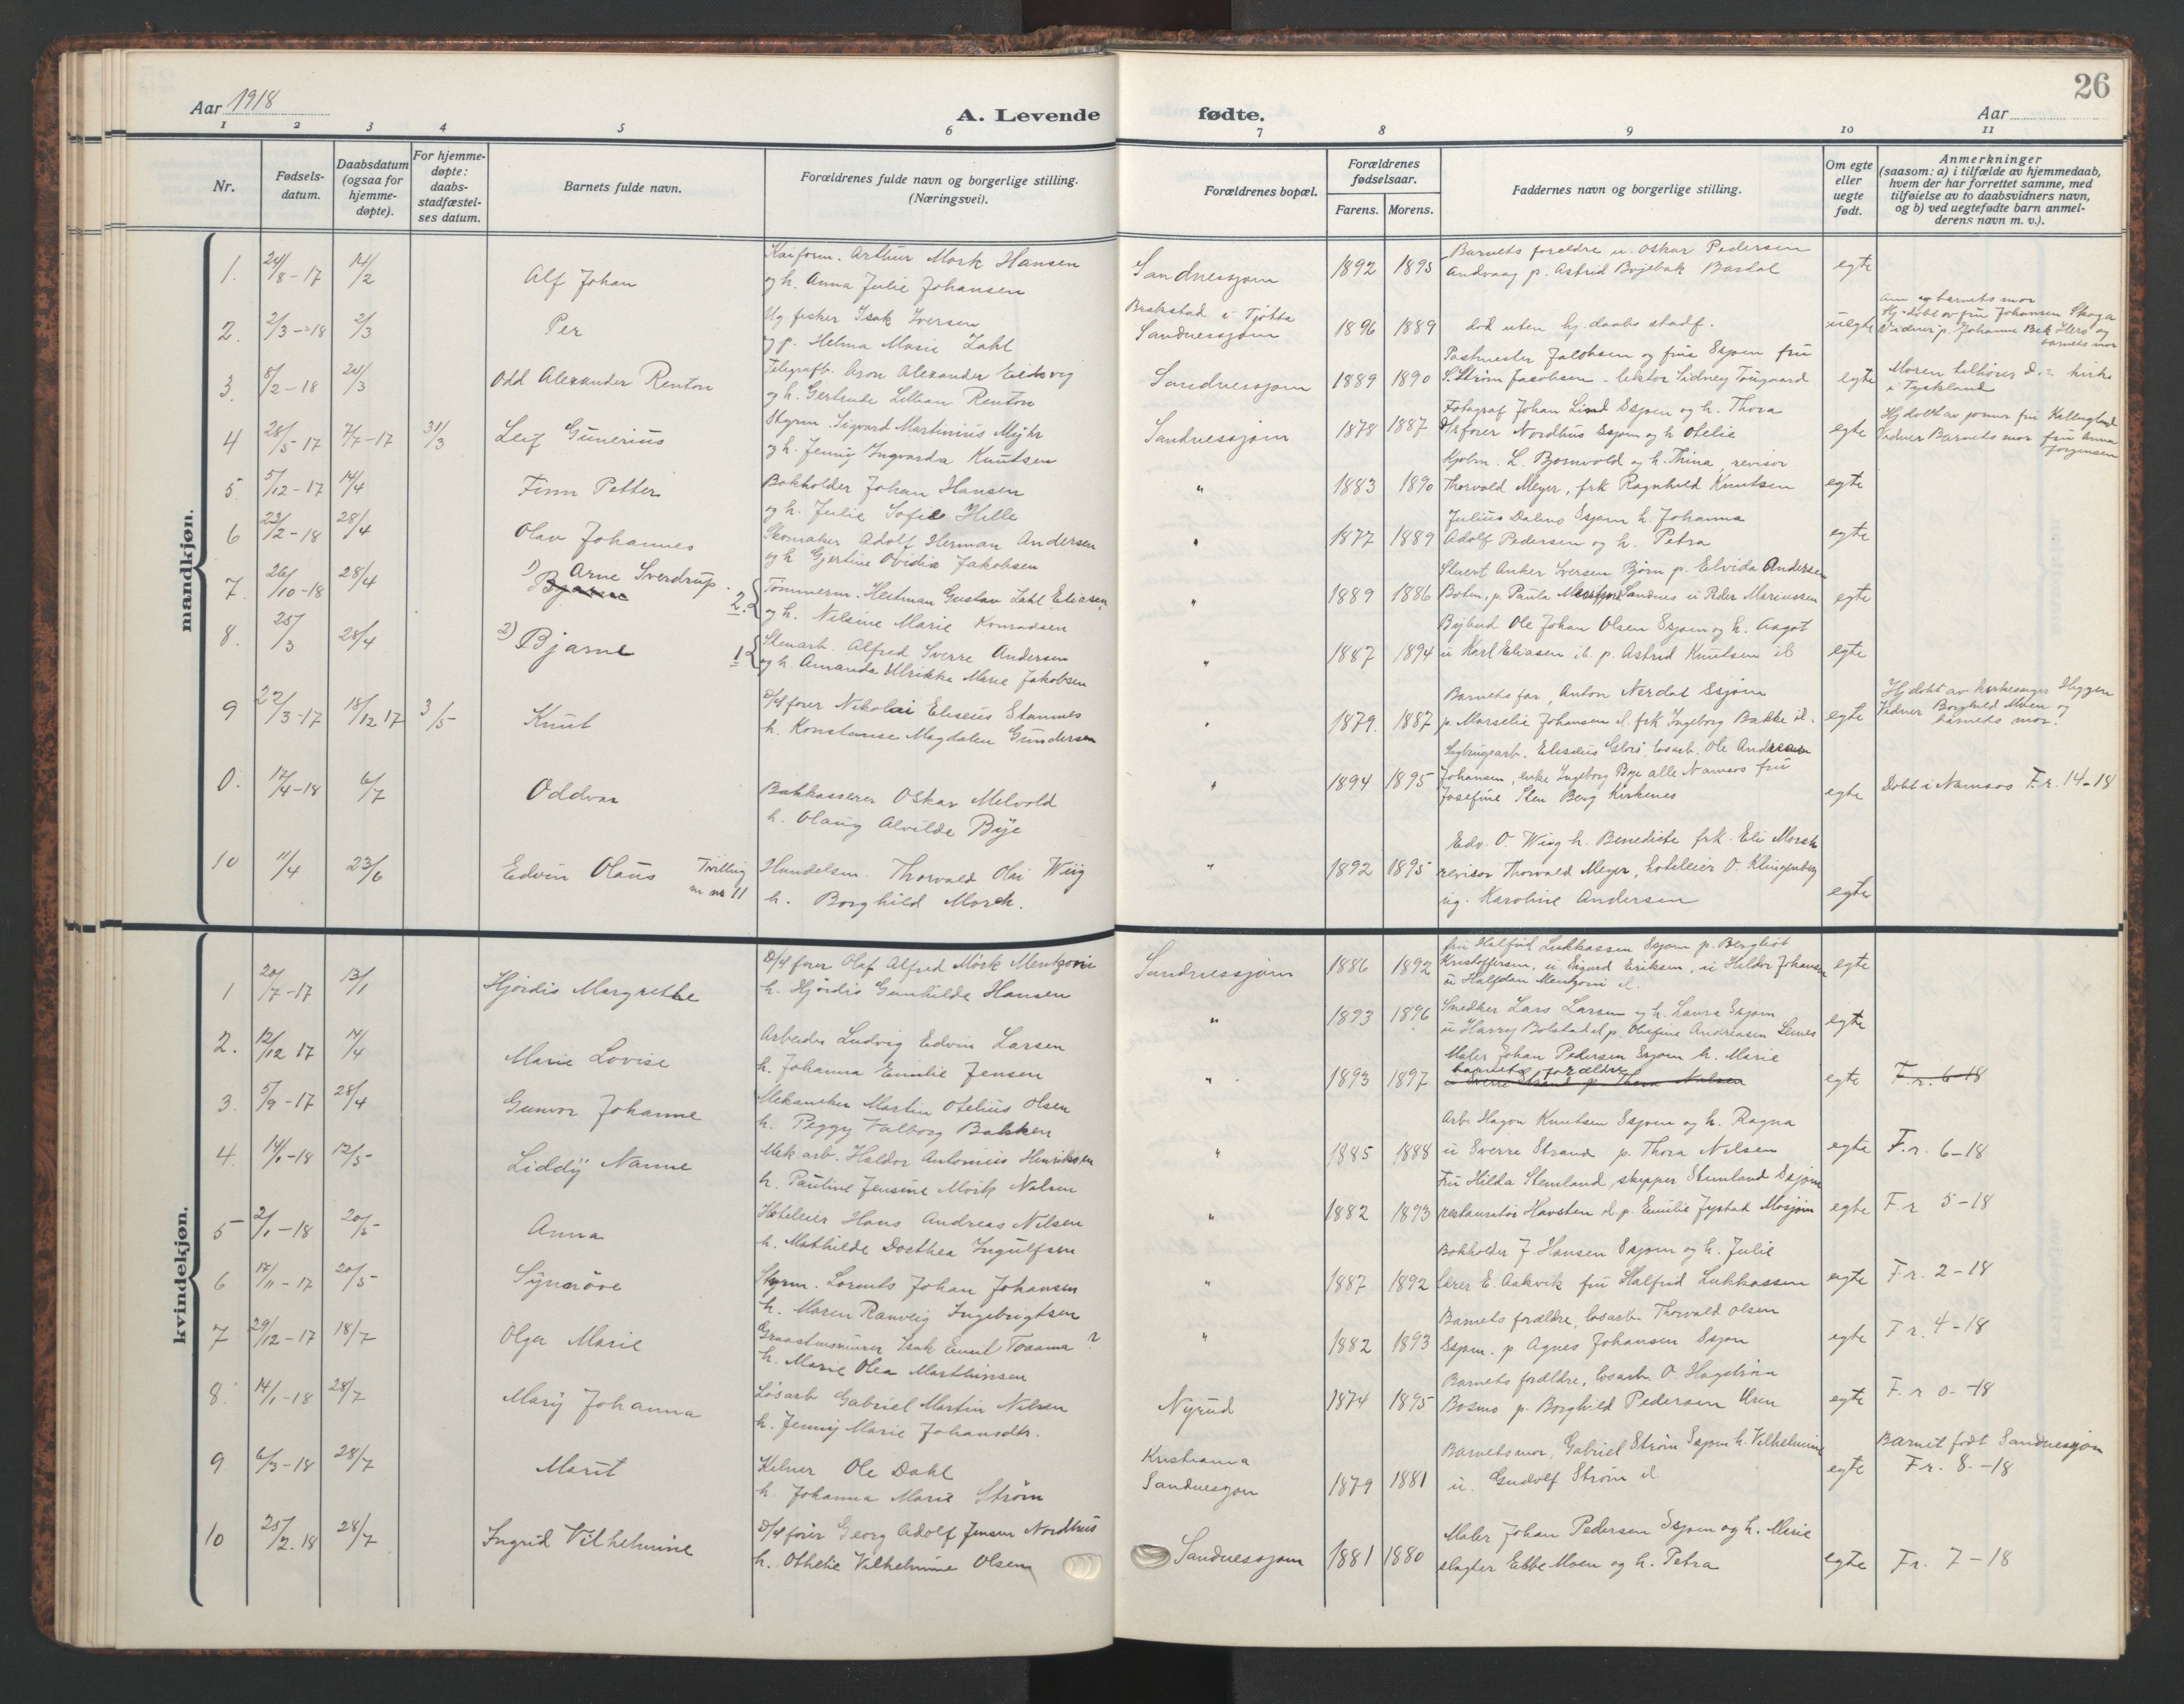 26
Aar 1918
A. Levende fødte.
Aar
1 2 3 4 5 6 7 8 9 10 11
Nr.
Fødsels-
datum.
Daabsdatum
(ogsaa for
hjemme-
døpte).
For hjemme-
døpte:
daabs-
stadfæstel-
ses datum.
Barnets fulde navn.
Forældrenes fulde navn og borgerlige stilling.
(Næringsvei).
Forældrenes bopæl.
Forældrenes
fødselsaar.
Farens. Morens.
Faddernes navn og borgerlige stilling.
Om egte
eller
uegte
født.
Anmerkninger
(saasom: a) i tilfælde av hjemmedaab,
hvem der har forrettet samme, med
tilføielse av to daabsvidners navn,
og b) ved uegtefødte barn anmel-
derens navn m. v.).
mandkjøn.
1. 24/8-17 14/2 Alf Johan
Arthur Mork Hansen
og h. Anna Julie Johansen
Sandnessjøen 1892 1895
Barnets foreldre u. Oskar Pedersen
Andvaag p. Astrid Bardal
egte
2. 2/3-18 2/3 Per
Ug fisker Isak Iversen
og p. Helma Marie Zahl
Brakstad i Tjøtta
Sandnessjøen 1896 1889
død uten hj.daabs stadf.
uegte
Hj.døbt av fru Johansen
barnets mor
3. 8/2-18 24/3 Odd Alexander Renton
Telegrafb. Aron Alexander Eidsvig
og h. Gertrude Lillian Renton
Sandnessjøen 1889 1890
Postmester Jakobsen og frue Ssjøen fru
S. Strøm Jacobsen - lektor Sidney
egte
Moren tilhører d. r. kirke
i Tyskland
4 28/5-17 7/7-17 31/3 Leif Gunerius
Styrm. Sigvard Martinius Myhr
og h. Jenny Ingvarda Knutsen
Sandnessjøen 1878 1887
Fotograf Johan Lind Ssjøen og h. Thora
D/sfører Nordhus Ssjøen og h Otelie
egte
Vidner Barnets mor fru Anna
Jørgensen
5. 5/12-17 14/4 Finn Petter
Bokholder Johan Hansen
og h. Julie Sofie Hille
" 1883 1890
Kjøbm. L. Bjørnvold og h. Thina, revisor
Thorvald Meyer, frk Ragnhild Knutsen
egte
6 23/2-18 28/4 Olav Johannes
Skomaker Adolf Herman Andersen
og h Gjertine Ovidia Jakobsen
" 1877 1889
Julius Dalmo Ssjøen h. Johanna
Adolf Pedersen og h. Petra
egte
7. 26/10-18 28/4 1) Arne Sverdrup.
Bjarne
2. Tømmerm. Heitman Gustav Zahl Eliasen
og h. Nilsine Marie Konradsen
" 1889 1886
Stuert Anker Iversen Bjørn p. Elvida Andersen
Botnm, p. Paula Sandnes u Peder Mariussen
egte
8. 25/3 28/4 2) Bjarne
1 Stenarb. Alfred Sverre Andersen
og h. Amanda Ulrikke Marie Jakobsen
" 1887 1894
Bybud Ole Johan Olsen Ssjøen og h. Aagot
u Karl Eliasen ib p. Astrid Knutsen ib
egte
9 22/3-17 18/12 17 3/5 Knut
D/s fører Nikolai Eliseus Stamnes
h. Konstanse Magdalen Gundersen
" 1879. 1887
Barnets far, Anton Nerdal Ssjøen
p. Marselie Johansen d. frk Ingeborg Bakke il.
egte
Hj døbt av kirkesanger Heggen
Vidner Borghild Moen og
barnets mor.
0. 17/4-18 6/7 Oddvar
Bakkasserer Oskar Melvold
h. Olaug Alvilde Bye
" 1894 1895
Sagbrugsarb. Eliseus løsarb. Ole Andreas
Johansen, enke Ingeborg Bye alle Namsos fru
Josefine Sten Berg Kirkenes
egte
Døbt i Namsos F.r. 14-18
10 11/4 23/6 Edvin Olaus Tvilling
m nr 11
Handelsm. Thorvald Olai Wiig
h. Borghild Morch.
" 1892 1895
Edv. O. Wiig h. Benedicte frk. Eli Morch
revisor Thorvald Meyer, hoteleier O. Klingenberg
Karoline Andersen
egte
kvindekjøn.
1 20/7-17 13/1 Hjørdis Margrethe
D/s fører Olaf Alfred Mörk Mentzoni
h. Hjørdis Gunhilde Hansen
Sandnessjøen 1886 1892
fru Halfrid Lukkassen Ssjøen p. Bergliot
Kristoffersen, u Sigurd Eriksen, u Haldor Johansen
u Halfdan Mentzoni d.
egte
2. 12/12 17 14/4 Marie Lovise
Arbeider Ludvig Edvin Larsen
h. Johanna Emilie Jensen
" 1893 1896
Snedker Lars Larsen og h. Laura Ssjøen
u Harry Bolstad d p. Olufine Andreasen
egte
3. 5/9-17 28/4 Gunvor Johanne
Mekaniker Martin Otelius Olsen
h. Peggy Valborg Bakken
" 1893 1897
Maler Johan Pedersen Ssjøen h. Marie
barnets foreldre
u Sverre Strand p. Thora Nilsen
egte F.r. 6-18
4. 14/1-18 12/5 Liddy Nanne
Mek.arb. Haldor Antonius Henriksen
h. Pauline Jensine Mörk Nilsen
" 1885 1888
Arb. Hagon Knutsen Ssjøen og h. Ragna
u Sverre Strand p. Thora Nilsen
egte F.r. 6-18
5 2/1-18 20/5 Anna
Hoteleier Hans Andreas Nilsen
h. Mathilde Dorthea Ingulfsen
" 1882 1893
Fru Hilda Stemland, skipper Stemland Ssjøen
restauratør Havsten d p. Emilie Jystad Mosjøen
egte F.r 5-18
6 17/11-17 20/5 Synnøve
Styrm. Lorents Johan Johansen
h. Maren Ranveig Ingebrigtsen
" 1887 1892
Bokholder J. Hansen Ssjøen og h. Julie
lærer E. Aakvik fru Halfrid Lukkassen
egte F.r. 2-18
7 29/12-17 18/7 Olga Marie
Isak Emil Toaama ?
h. Marie Olea Marthinsen
" 1882 1893
Barnets forældre, løsarb. Thorvald Olsen
Ssjøen. p. Agnes Johansen Ssjøen
egte F r. 4-18
8. 14/1-18 28/7 Mary Johanna
Løsarb Gabriel Martin Nilsen
h. Jenny Marie Johansdtr.
Nyrud 1874 1895
Barnets forældre, løsarb. O. Hagstrøm
Bosmo p. Borghild Pedersen Uren
egte F. r 0.-18
9 6/3-18 28/7 Marit
Kelner Ole Dahl
h. Johanna Marie Strøm
Kristiania
Sandnessjøen 1879 1881
Barnets mor, Gabriel Strøm Ssjøen h. Vilhelmine
u. Gudolf Strøm il
egte
Barnet født Sandnessjøen
F r. 8.-18
10 25/2.18 28/7 Ingrid Vilhelmine
D/s fører Georg Adolf Jensen Nordhus
h. Othelie Vilhelmine Olsen
Sandnessjøen 1881 1880
Maler Johan Pedersen Ssjøen og h. Marie
slagter Ebbe Moen og h. Petra
egte Fr. 7-18